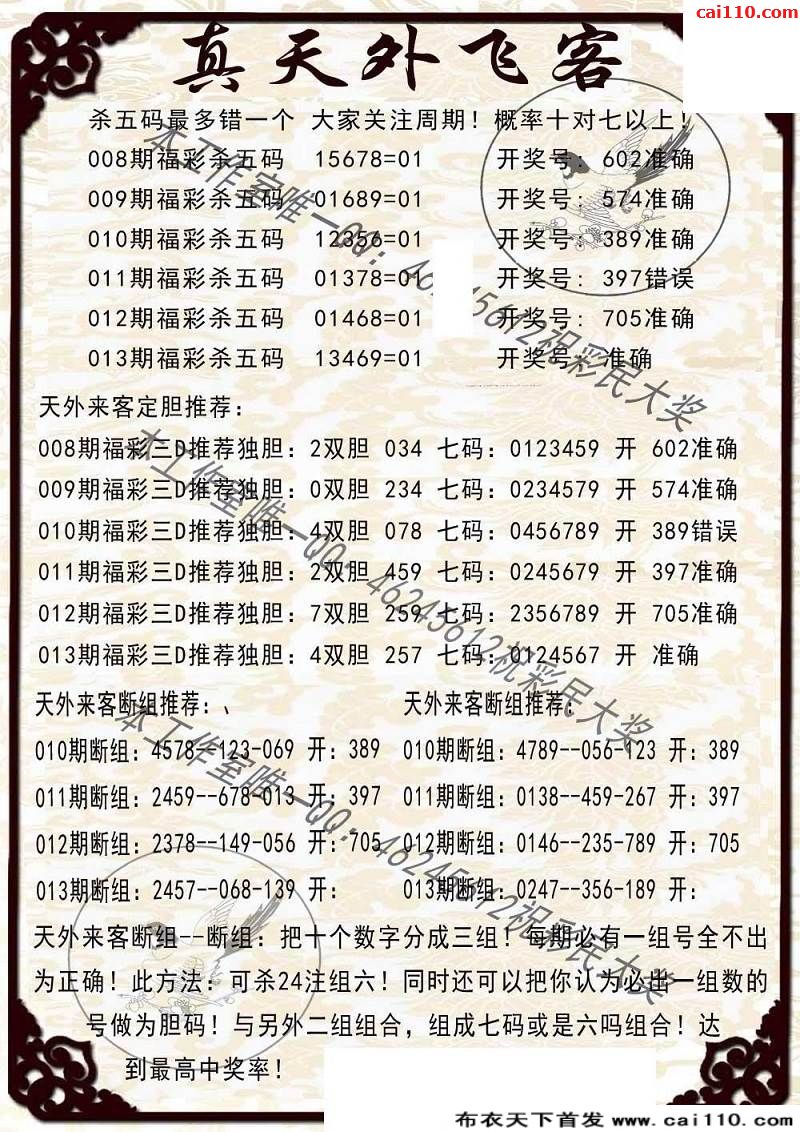 cai110.com
真天外飞客
杀五码最多错一个 大家关注周期！概率十对七以上！
008期福彩杀五码 15678=01 开奖号：602准确
009期福彩杀五码 01689=01 开奖号：574准确
010期福彩杀五码 12356=01 开奖号：389准确
011期福彩杀五码 01378=01 开奖号：397错误
012期福彩杀五码 01468=01 开奖号：705准确
013期福彩杀五码 13469=01 开奖号：准确
天外来客定胆推荐：
008期福彩三D推荐独胆：2双胆 034 七码：0123459 开 602准确
009期福彩三D推荐独胆：0双胆 234 七码：0234579 开 574准确
010期福彩三D推荐独胆：4双胆 078 七码：0456789 开 389错误
011期福彩三D推荐独胆：2双胆 459 七码：0245679 开 397准确
012期福彩三D推荐独胆：7双胆 259 七码：2356789 开 705准确
013期福彩三D推荐独胆：4双胆 257 七码：0124567 开 准确
天外来客断组推荐：、 天外来客断组推荐：
010期断组：4578--123-069 开：389 010期断组：4789--056-123 开：389
011期断组：2459--678-013 开：397 011期断组：0138--459-267 开：397
012期断组：2378--149-056 开：705 012期断组：0146--235-789 开：705
013期断组：2457--068-139 开： 013期断组：0247--356-189 开：
天外来客断组--断组：把十个数字分成三组！每期必有一组号全不出
为正确！此方法：可杀24注组六！同时还可以把你认为必出一组数的
号做为胆码！与另外二组组合，组成七码或是六吗组合！达
到最高中奖率！
本工作室唯一QQ：46245612祝彩民大奖
本工作室唯一QQ：46245612祝彩民大奖
本工作室唯一QQ：46245612祝彩民大奖
布衣天下首发 www.cai110.com